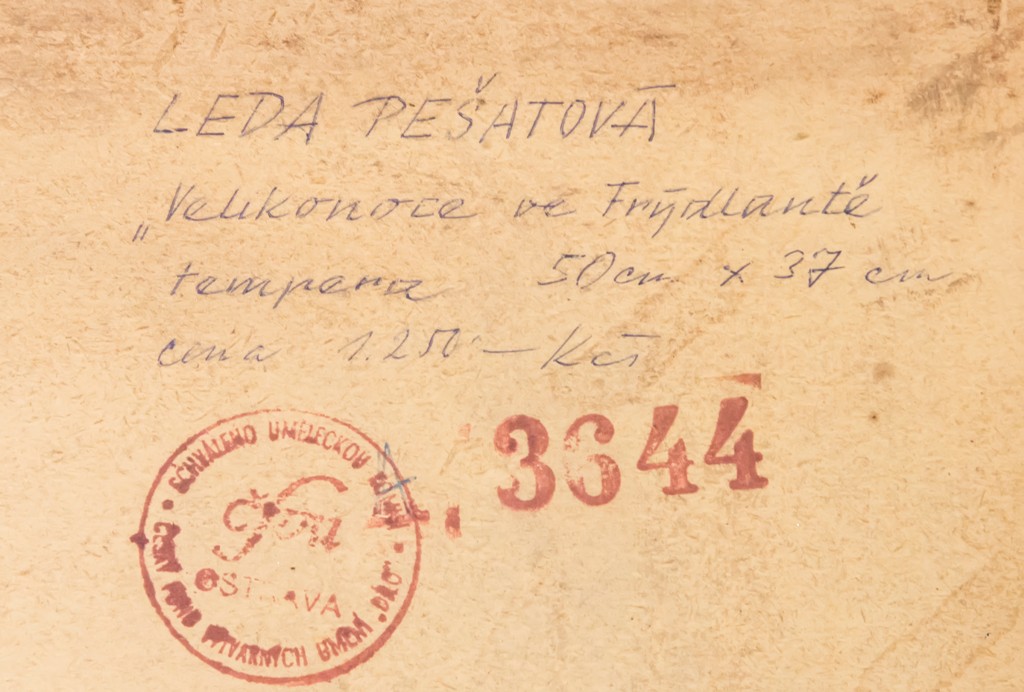 LEDA PEŠATOVÁ
„Velikonoce ve Frýdlantě
tempera 50 cm x 37 cm
cena 1.250 — Kčs
3644
SCHVÁLENO UMĚLECKOU
OSTRAVA
ČESKÝ FOND VÝTVARNÝCH UMĚNÍ „DÍLO"